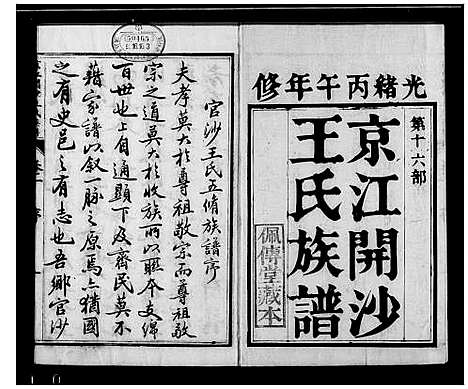 光緒丙午年修
第十六部
京江開沙
王氏族譜
佩傳堂藏本
官沙王氏五脩族譜序
夫孝莫大於尊祖敬宗而尊祖敬
宗之道莫大於收族所以聯本支綿
百世也上自通顯下及齊民莫不
藉家譜以叙一脉之原焉亦猶國
之有史邑之有志也吾鄉官沙